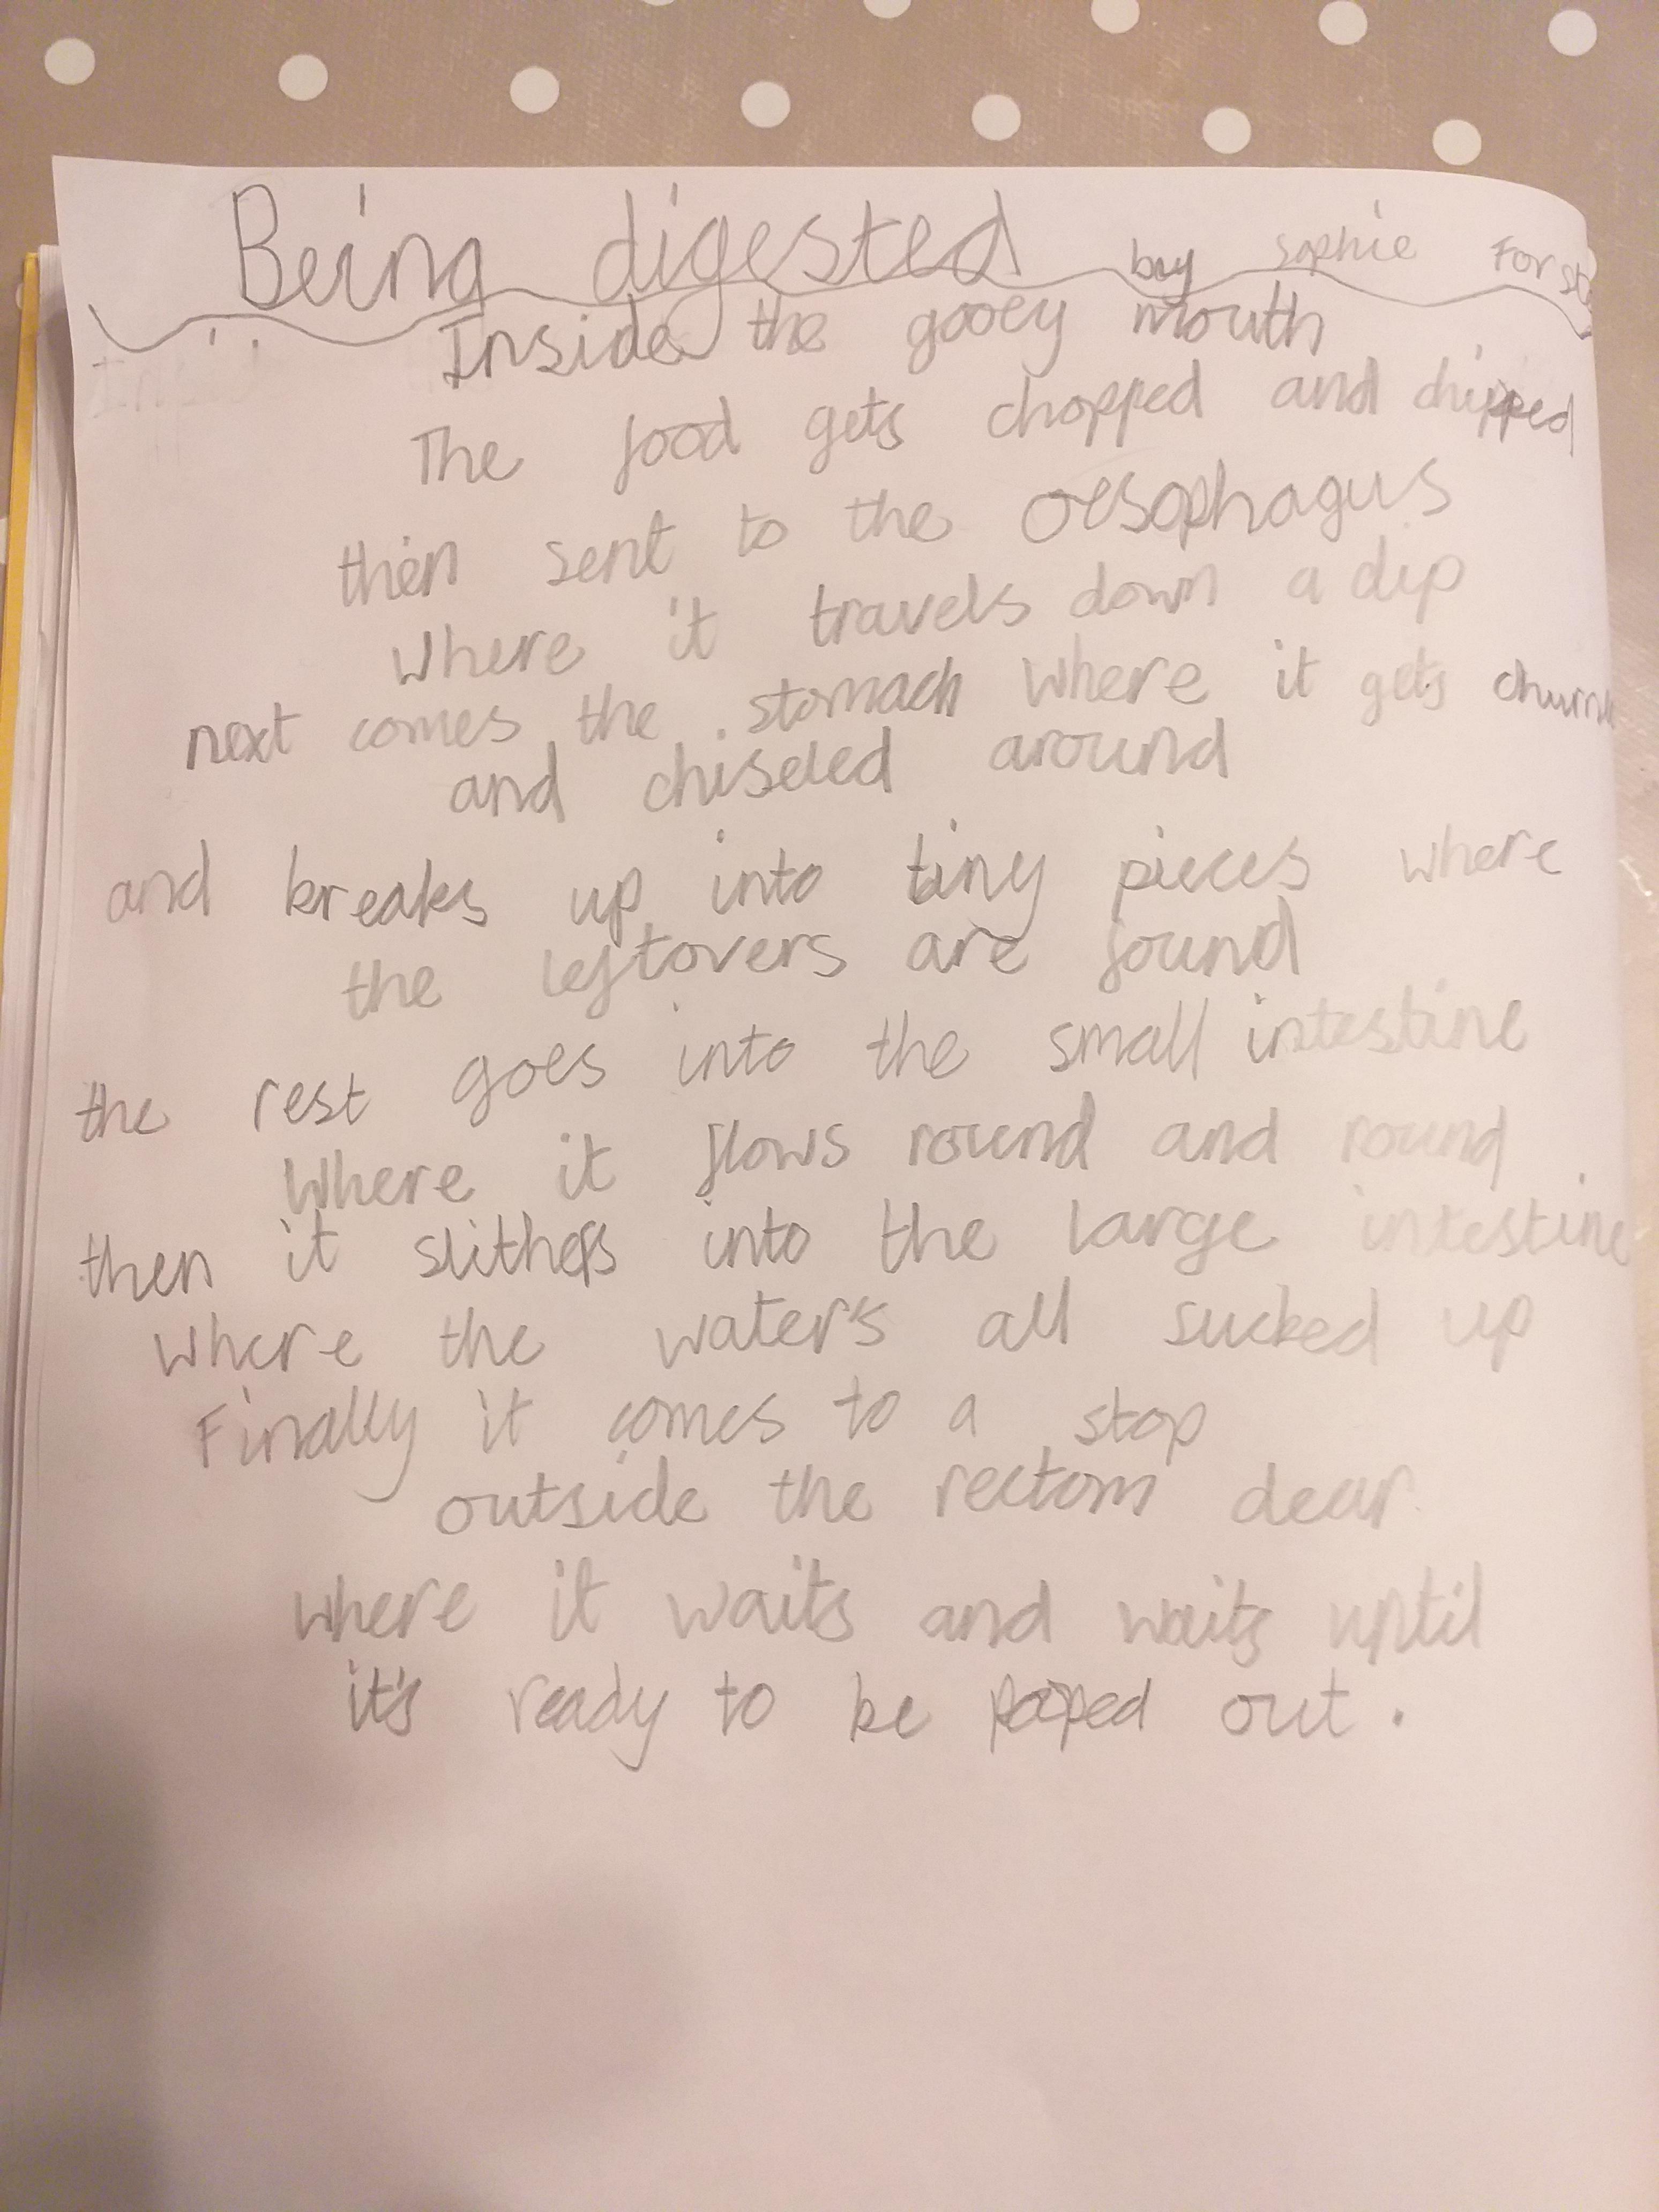 Being digested by Sophie
Inside the gooey mouth
The food gets chopped and chipped
then sent to the oesophagus
Where it travels down a dip
next comes the stomach where it gets
and chiseled around
and breaks up into tiny pieces where
the leftovers are found
the rest goes into the small intestine
Where it flows round and round
then it slithers into the large intestine
where the water's all sucked up
Finally it comes to a stop
outside the rectom dear
where it waits and waits until
it's ready to be pooped out.